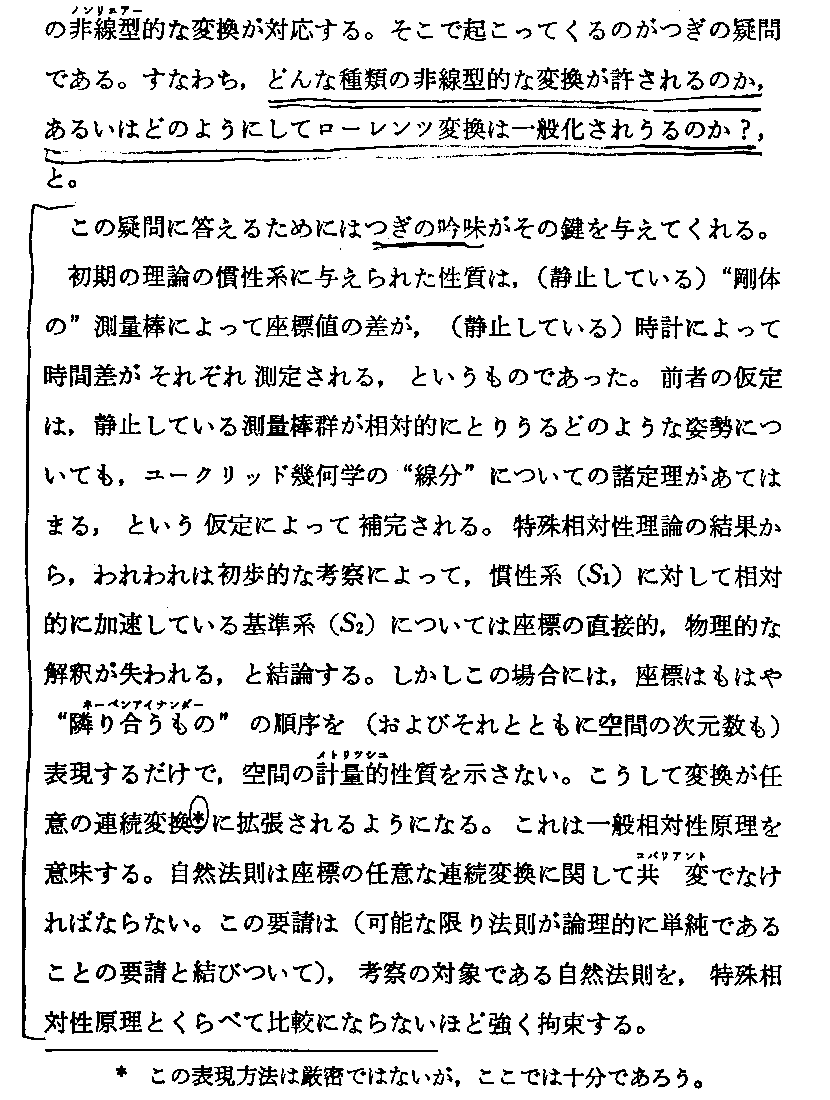 ノンリニアー
の非線型的な変換が対応する。そこで起こってくるのがつぎの疑問
である。すなわち，どんな種類の非線型的な変換が許されるのか，
あるいはどのようにしてローレンツ変換は一般化されうるのか？，
と。
この疑問に答えるためにはつぎの吟味がその鍵を与えてくれる。
初期の理論の慣性系に与えられた性質は，（静止している）“剛体
の”測量棒によって座標値の差が，（静止している）時計によって
時間差が それぞれ 測定される， というものであった。前者の仮定
は，静止している測量棒群が相対的にとりうるどのような姿勢につ
いても，ユークリッド幾何学の“線分”についての諸定理があては
まる， という 仮定によって 補完される。特殊相対性理論の結果か
ら，われわれは初歩的な考察によって，慣性系（S₁）に対して相対
的に加速している基準系（S₂）については座標の直接的，物理的な
解釈が失われる，と結論する。しかしこの場合には，座標はもはや
ネーベンアイナンダー
“隣り合うもの” の順序を （およびそれとともに空間の次元数も）
メトリッシュ
表現するだけで，空間の計量的性質を示さない。こうして変換が任
意の連続変換*に拡張されるようになる。これは一般相対性原理を
コバリアント
意味する。自然法則は座標の任意な連続変換に関して共 変でなけ
ればならない。この要請は（可能な限り法則が論理的に単純である
ことの要請と結びついて），考察の対象である自然法則を，特殊相
対性原理とくらべて比較にならないほど強く拘束する。
* この表現方法は厳密ではないが，ここでは十分であろう。